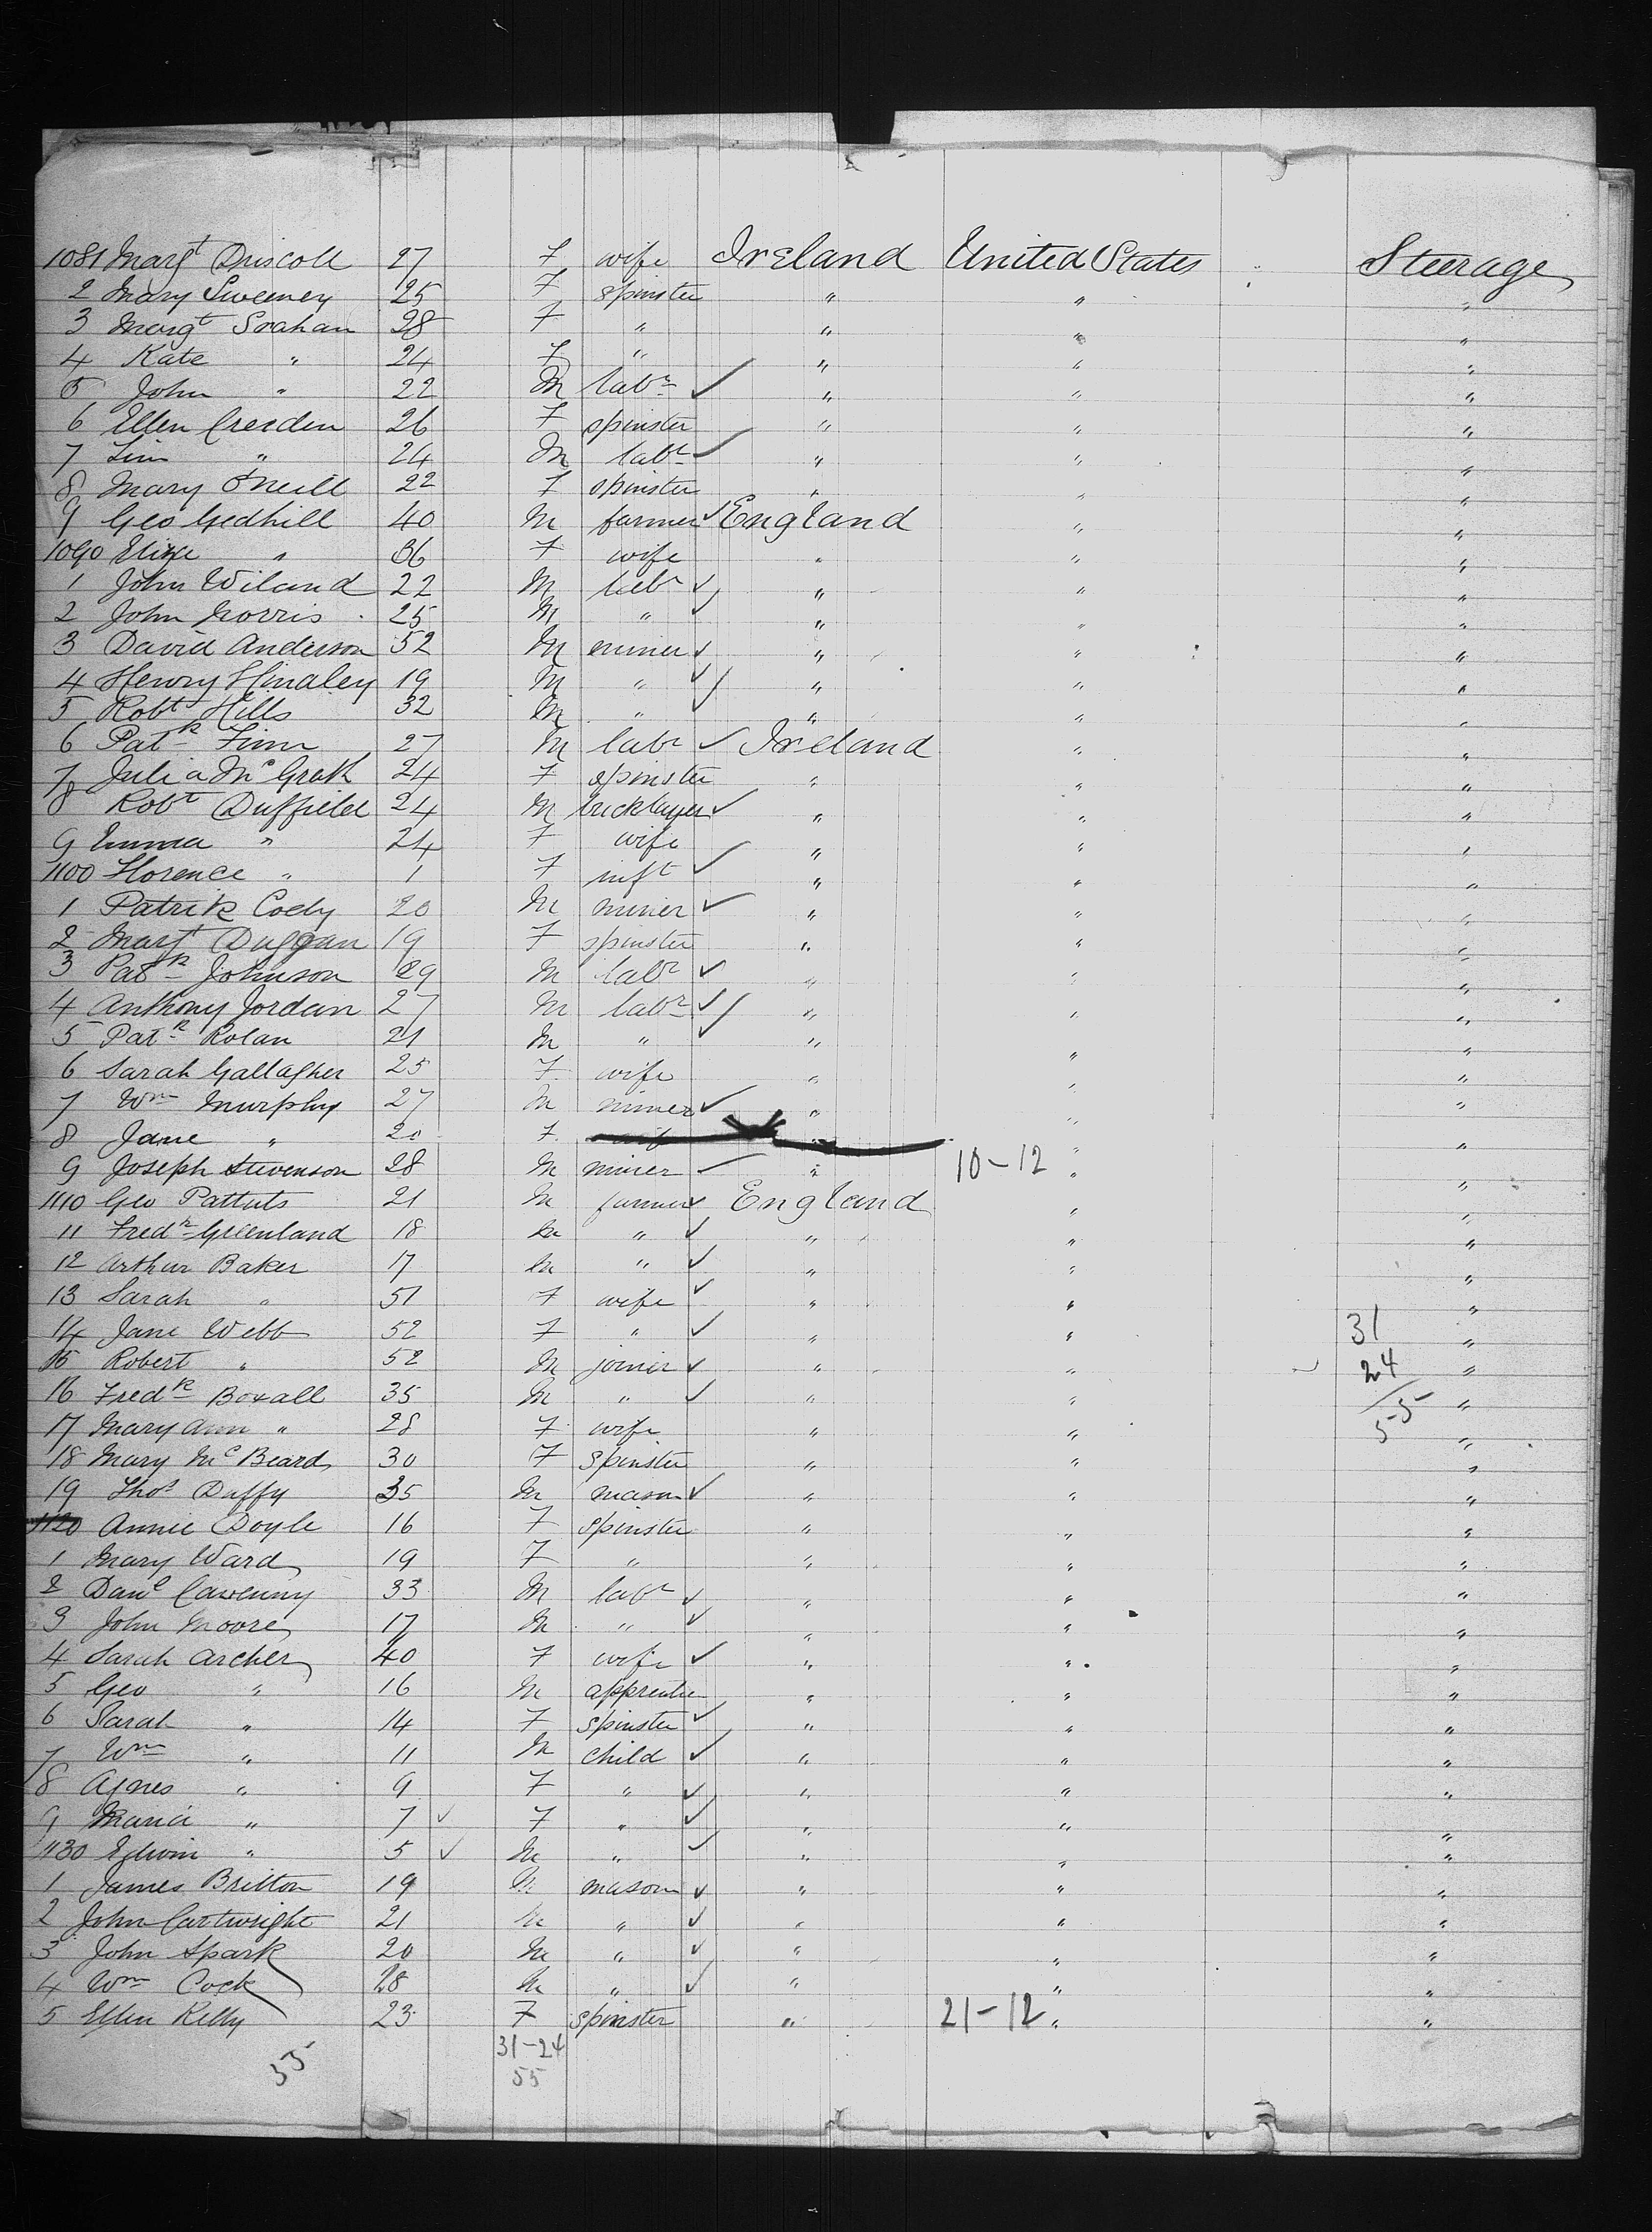 1081 Margt Driscoll 27 F wife Ireland United States " Steerage
2 Mary Sweeney 25 F spinster " " "
3 Margt Srahan 28 F " " " "
4 Kate " 24 F " " " "
5 John " 22 M labr ✓ " " "
6 Ellen Creeden 26 F spinster " " "
7 Tim " 24 M labr ✓ " " "
8 Mary O'Neill 22 F spinster " " "
9 Geo Gedhill 40 M farmer ✓ England " "
1090 Eliza " 36 F wife " " "
1 John Wiland 22 M labr ✓ " " "
2 John Norris 25 M " ✓ " " "
3 David Anderson 52 M miner ✓ " " "
4 Henry Hindley 19 M " ✓ " " "
5 Robt Hills 32 M " ✓ " " "
6 Patk Finn 27 M labr ✓ Ireland " "
7 Julia McGrath 24 F spinster " " "
8 Robt Duffield 24 M bricklayer ✓ " " "
9 Emma " 24 F wife " " "
1100 Florence " 1 F inft ✓ " " "
1 Patrik Cody 20 M miner ✓ " " "
2 Margt Duggan 19 F spinster " " "
3 Patk Johnson 29 M labr ✓ " " "
4 Anthony Jordan 27 M labr ✓ " " "
5 Patk Rolan 21 M " ✓ " " "
6 Sarah Gallagher 25 F wife " " "
7 Wm Murphy 27 M miner ✓ " " "
8 Jane " 20 F wife " " "
9 Joseph Stevenson 28 M miner ✓ " 10-12 " "
1110 Geo Pattuts 21 M farmer ✓ England " "
11 Fredk Greenland 18 M " ✓ " " "
12 Arthur Baker 17 M " ✓ " " "
13 Sarah " 51 F wife ✓ " " "
14 Jane Webb 52 F " ✓ " " 31 "
15 Robert " 52 M joiner ✓ " " 24 "
16 Fredk Boxall 35 M " ✓ " " 55 "
17 Mary Ann " 28 F wife " " "
18 Mary McBeard 30 F spinster " " "
19 Thos Duffy 35 M mason ✓ " " "
1120 Annie Doyle 16 F spinster " " "
1 Mary Ward 19 F " " " "
2 Danl Cavenny 33 M labr ✓ " " "
3 John Moore 17 M " ✓ " " "
4 Sarah Archer 40 F wife ✓ " " "
5 Geo " 16 M apprentice " " "
6 Sarah " 14 F spinster ✓ " " "
7 Wm " 11 M child ✓ " " "
8 Agnes " 9 F " ✓ " " "
9 Maria " 7 ✓ F " ✓ " " "
1130 Edwin " 5 ✓ M " ✓ " " "
1 James Britton 19 M mason ✓ " " "
2 John Cartwright 21 M " ✓ " " "
3 John Spark 20 M " ✓ " " "
4 Wm Cock 28 M " ✓ " " "
5 Ellen Kelly 23 F spinster " 21-12 " "
31-24
55 55